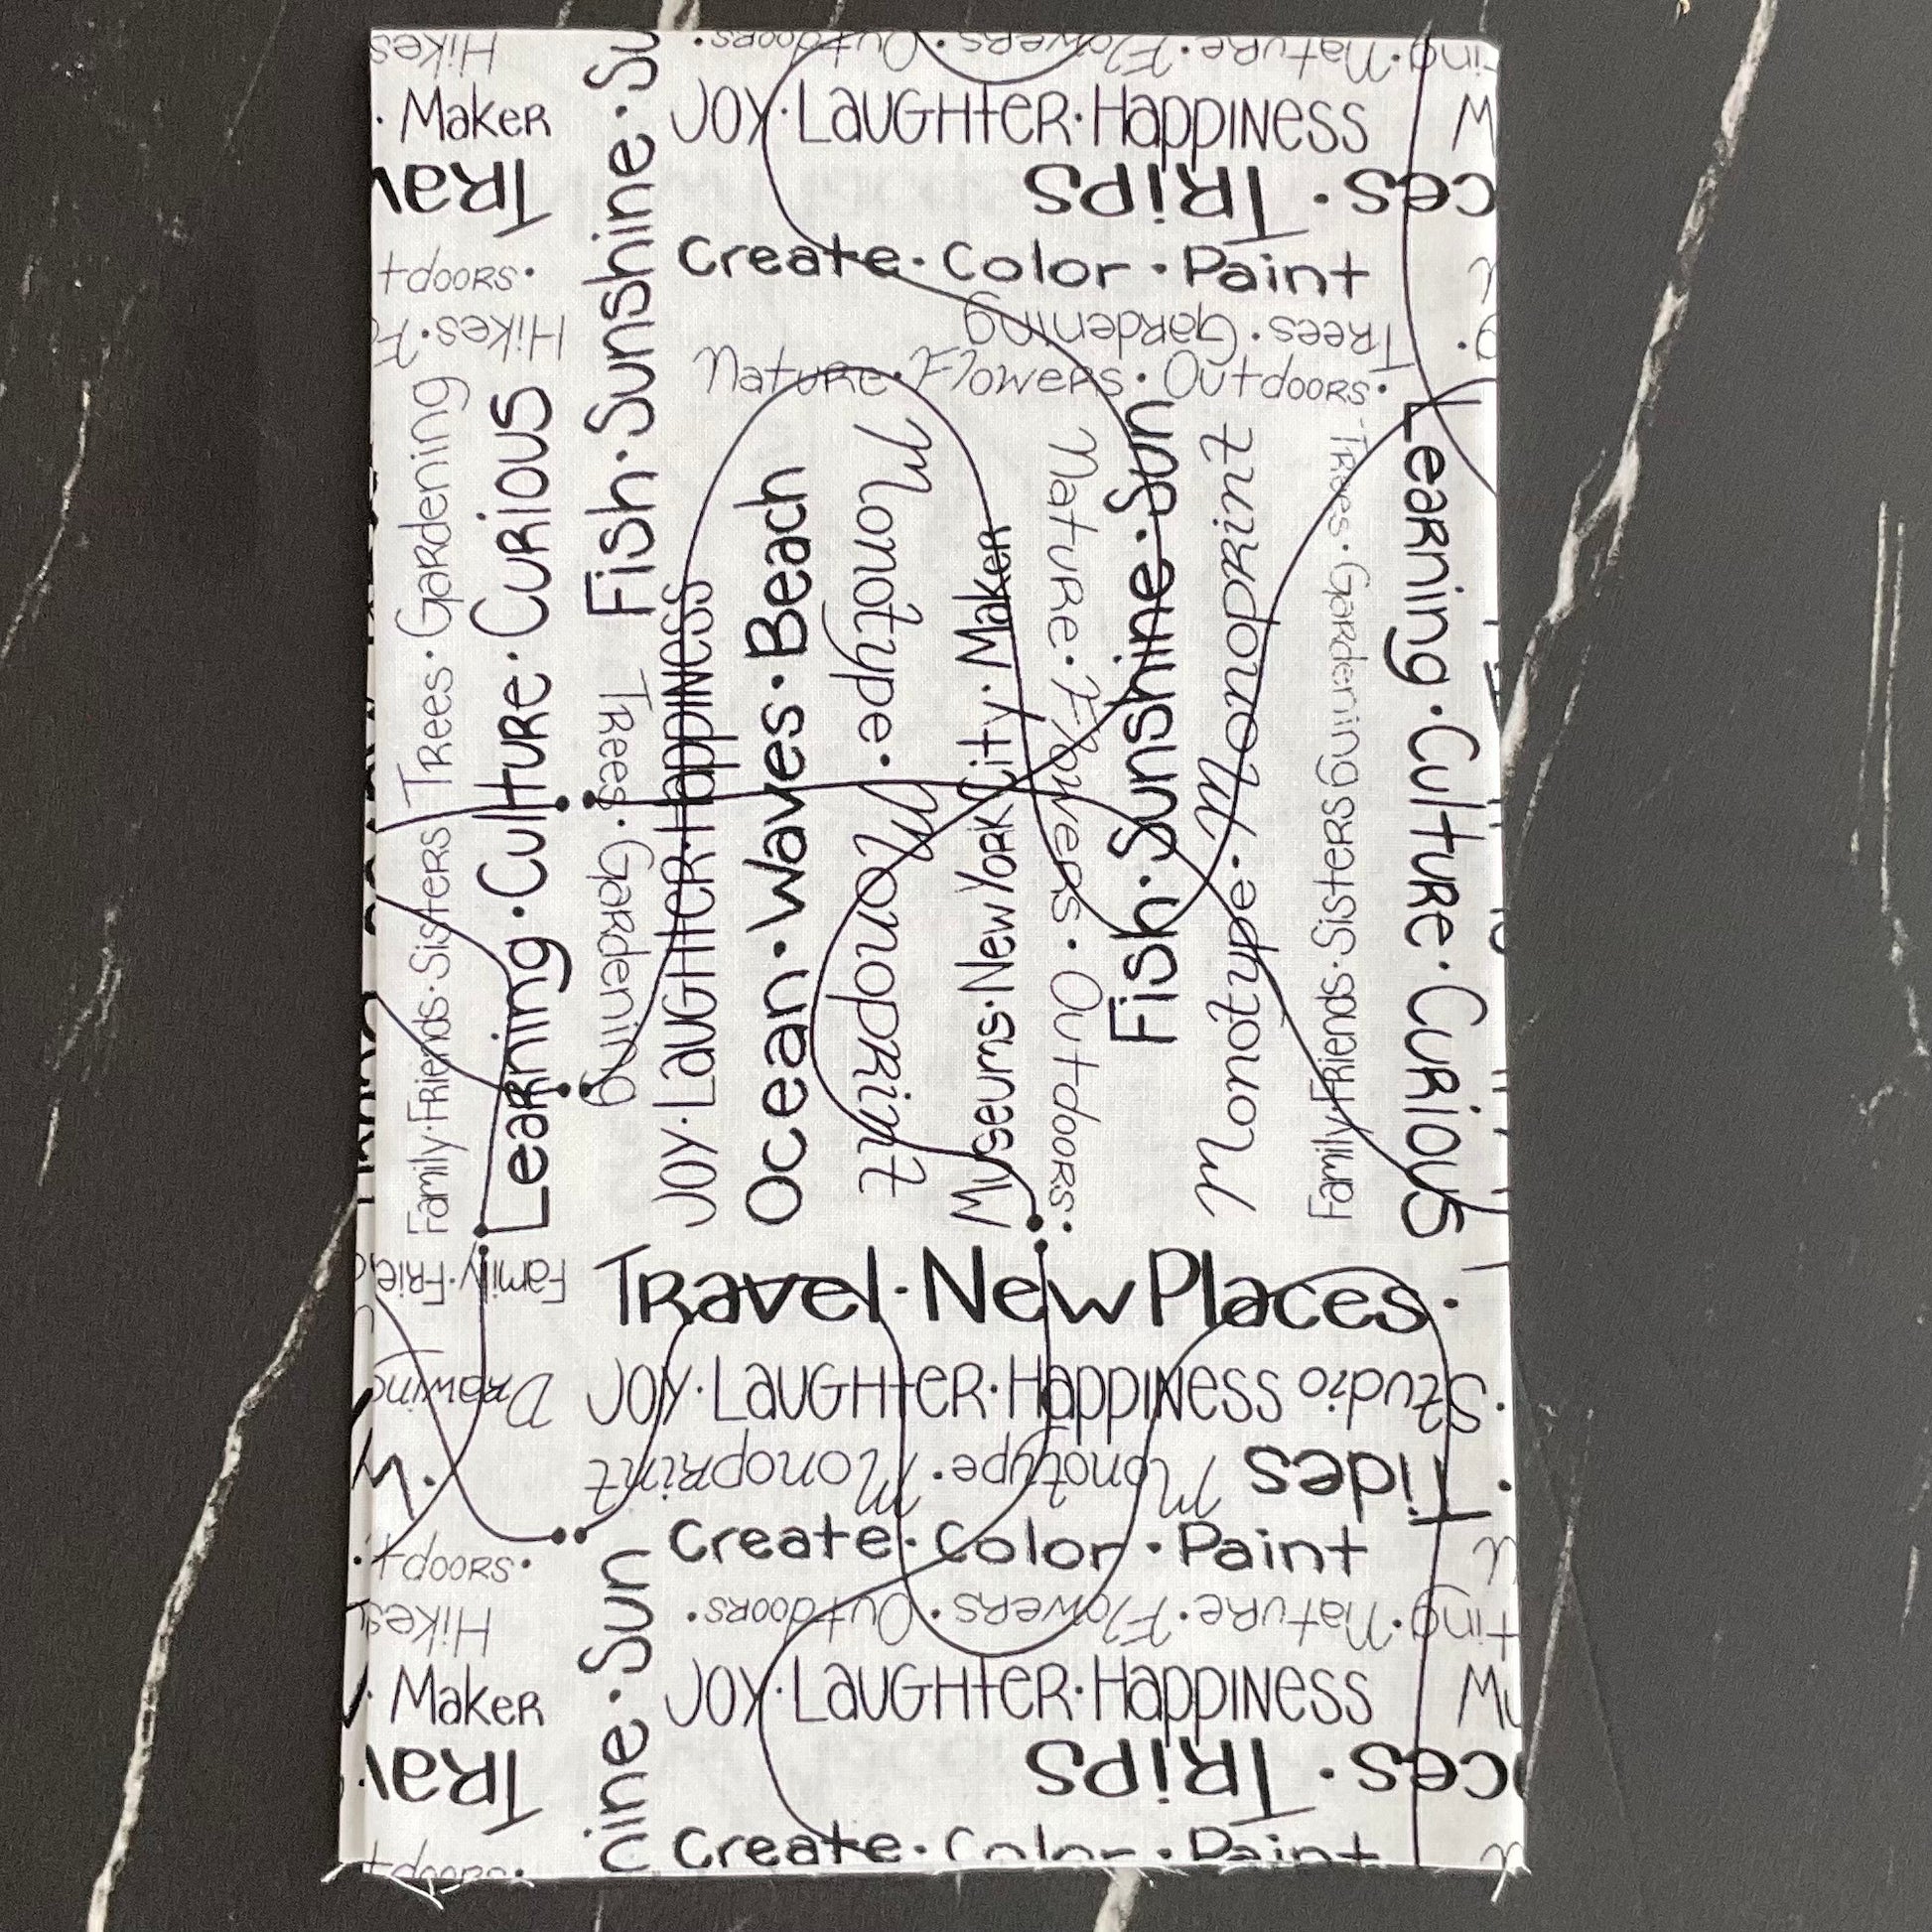 Hikes
·Outdoors · Flowers · Nature·
· Maker
Joy·Laughter·Happiness
Trips ·
Create· Color · Paint
tdoors·
Trees·Gardening
Hikes·
Nature·Flowers·Outdoors·
Fish·Sunshine·Su
Trees·Gardening
Learning·Culture·Curious
Family·Friends·Sisters
Trees·Gardening
Joy·Laughter·Happiness
Ocean·Waves·Beach
Monotype·Monoprint
Museums·New York City·Maker
Nature·Flowers·Outdoors·
Fish·Sunshine·Sun
Monotype·Monoprint
Trees·Gardening
Family·Friends·Sisters
Learning·Culture·Curious
Family·Frie
Travel·New Places·
Drawing
Joy·Laughter·Happiness
Studio
Monotype·Monoprint
Tides
Create·Color·Paint
tdoors·
Hikes
Nature·Flowers·Outdoors·
hine·Sun
· Maker
Joy·Laughter·Happiness
Mu
Trav
ces · Trips
Create·Color·Paint